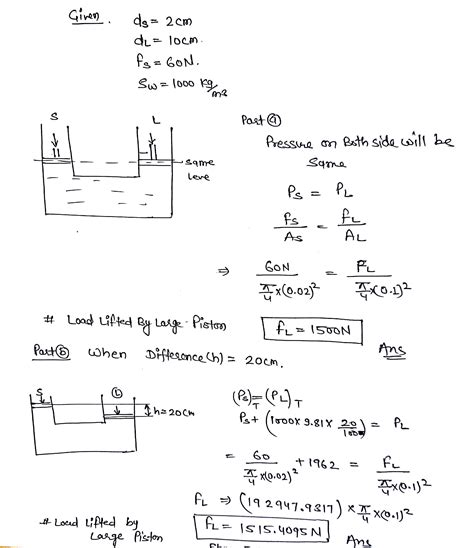 Given
ds = 2cm
dL = 10cm.
fs = 60N.
Sw = 1000 kg/m3
S L
same
leve
Part (a)
Pressure on Both side will be
same
Ps = PL
fs/As = fL/AL
⇒ 60N / (π/4 × (0.02)²) = FL / (π/4 × (0.1)²)
# Load Lifted By Large Piston
fL = 1500N
Ans
Part (b) When Difference (h) = 20cm.
S L
h=20cm
(Ps)T = (PL)T
Ps + (1000 × 9.81 × 20/100) = PL
= 60 / (π/4 × (0.02)²) + 1962 = FL / (π/4 × (0.1)²)
FL ⇒ (192947.9317) × π/4 × (0.1)²
# Load Lifted by
Large Piston
fL = 1515.4095N
Ans